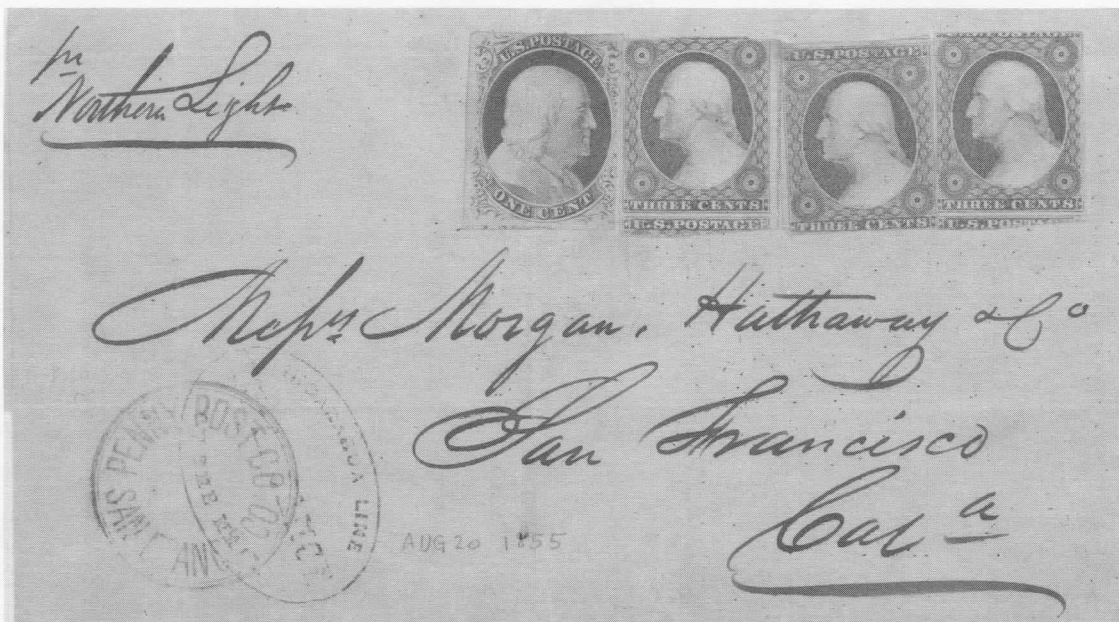 pr
Northern Light
U.S. POSTAGE
ONE CENT
THREE CENTS
U.S. POSTAGE
U.S. POSTAGE
THREE CENTS
THREE CENTS
U.S. POSTAGE
Messrs Morgan, Hathaway & Co
San Francisco
Cala
PENNY POST CO.
LINE
THE
AUG 20 1855